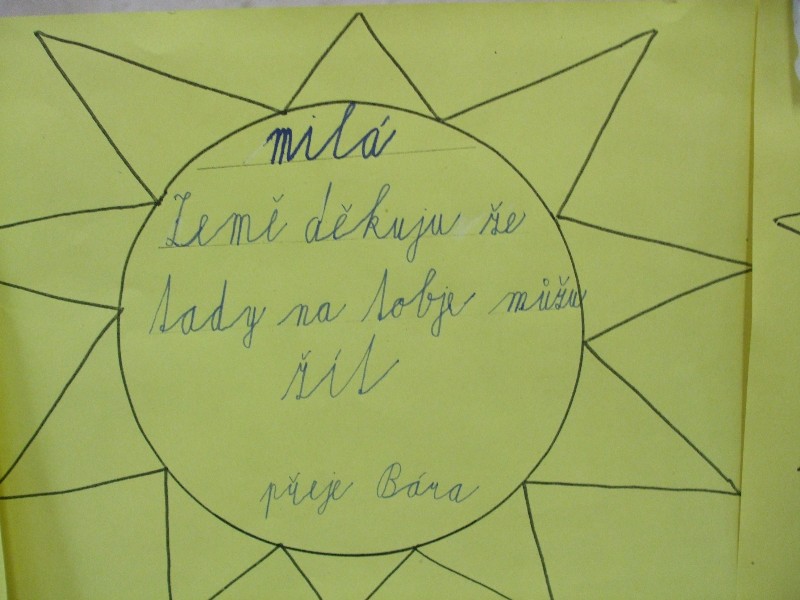 milá
Země děkuju že
tady na tobje můžu
žít
přeje Bára